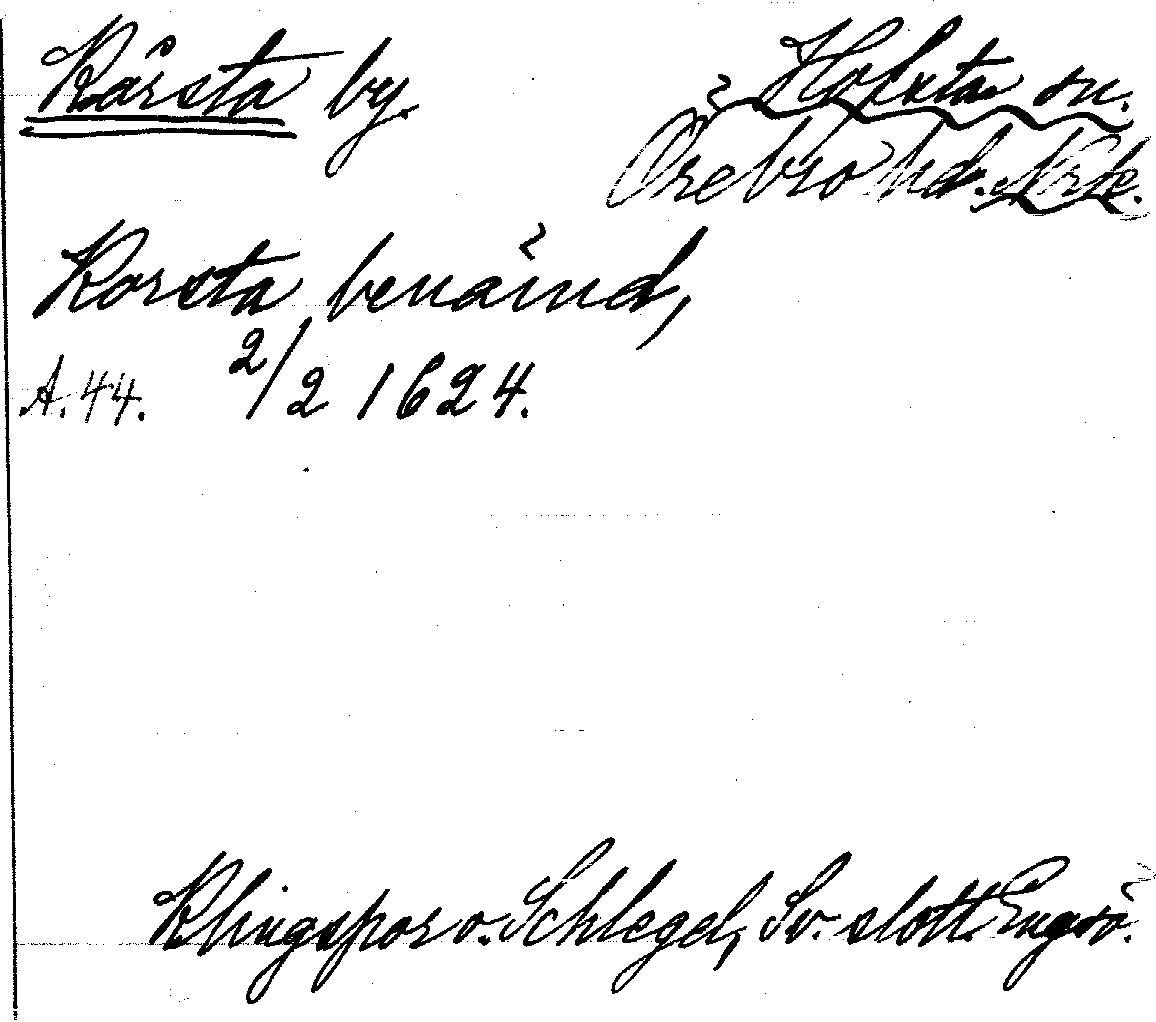 Kårsta by. Hofsta sn.
Örebro hd. Nrk.
Korsta benämd,
A. 44. 2/2 1624.
Klingspor o. Schlegel, Sv. slott. Engsö.